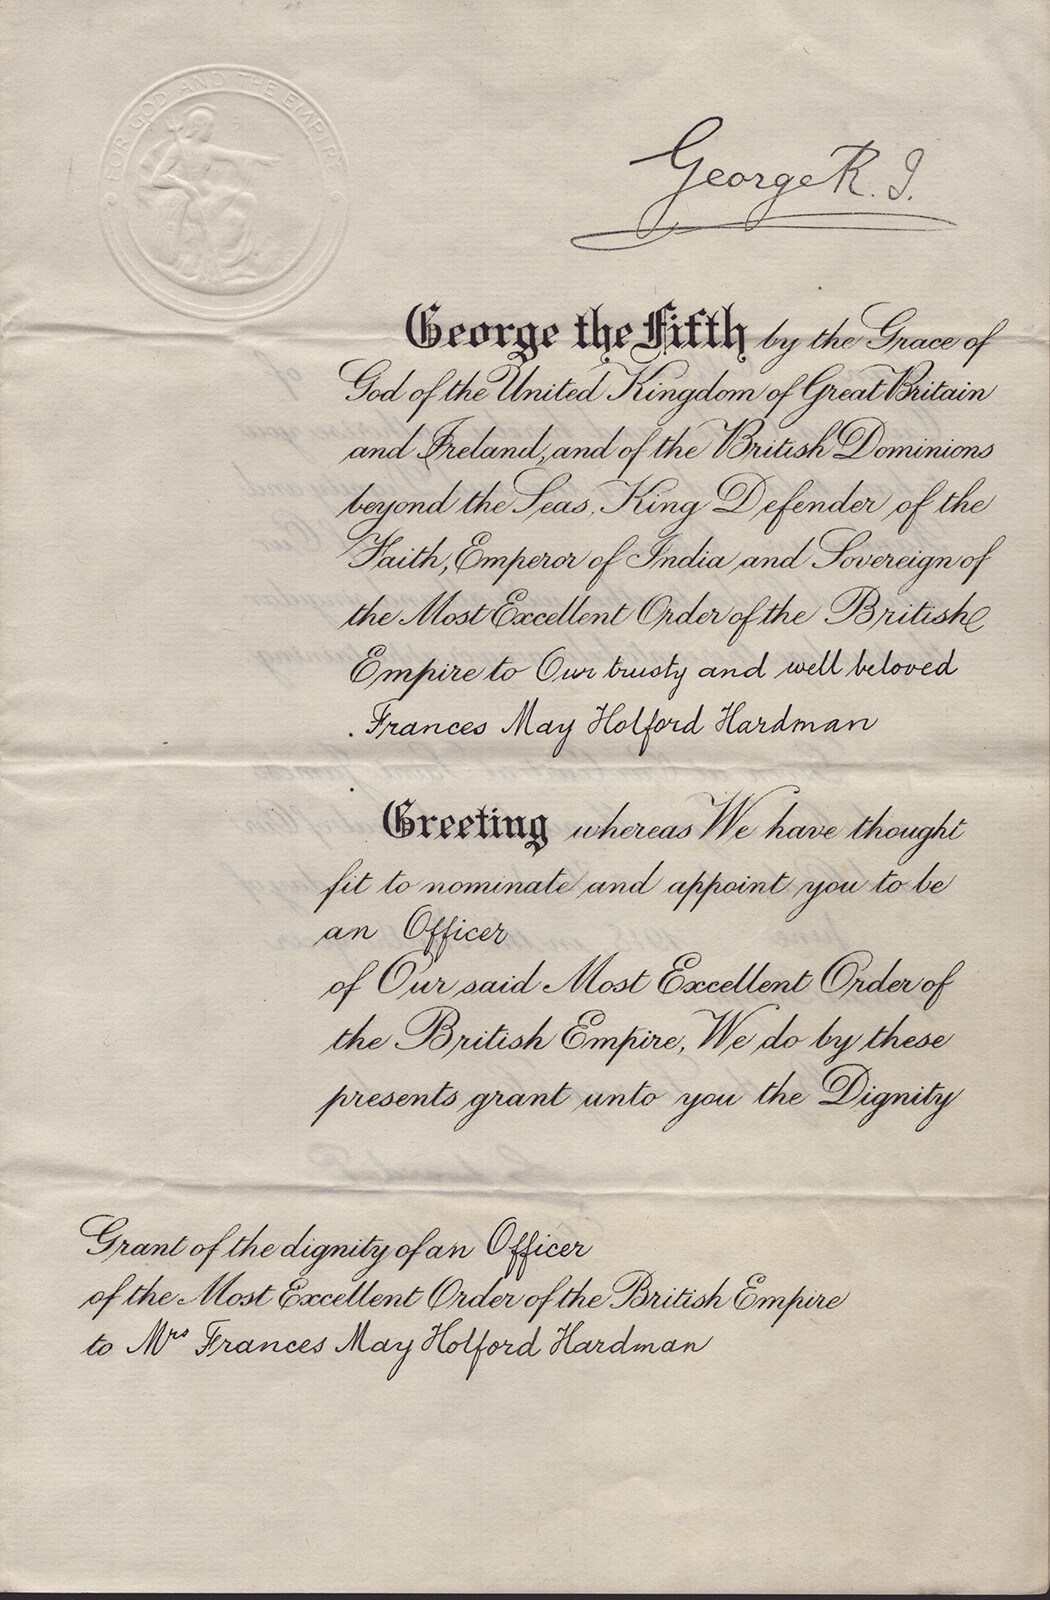 FOR GOD AND THE EMPIRE
George R. I.
George the Fifth by the Grace of
God of the United Kingdom of Great Britain
and Ireland, and of the British Dominions
beyond the Seas, King Defender of the
Faith, Emperor of India and Sovereign of
the Most Excellent Order of the British
Empire to Our trusty and well beloved
. Frances May Holford Hardman
Greeting whereas We have thought
fit to nominate and appoint you to be
an Officer
of Our said Most Excellent Order of
the British Empire, We do by these
presents grant unto you the Dignity
Grant of the dignity of an Officer
of the Most Excellent Order of the British Empire
to Mrs Frances May Holford Hardman